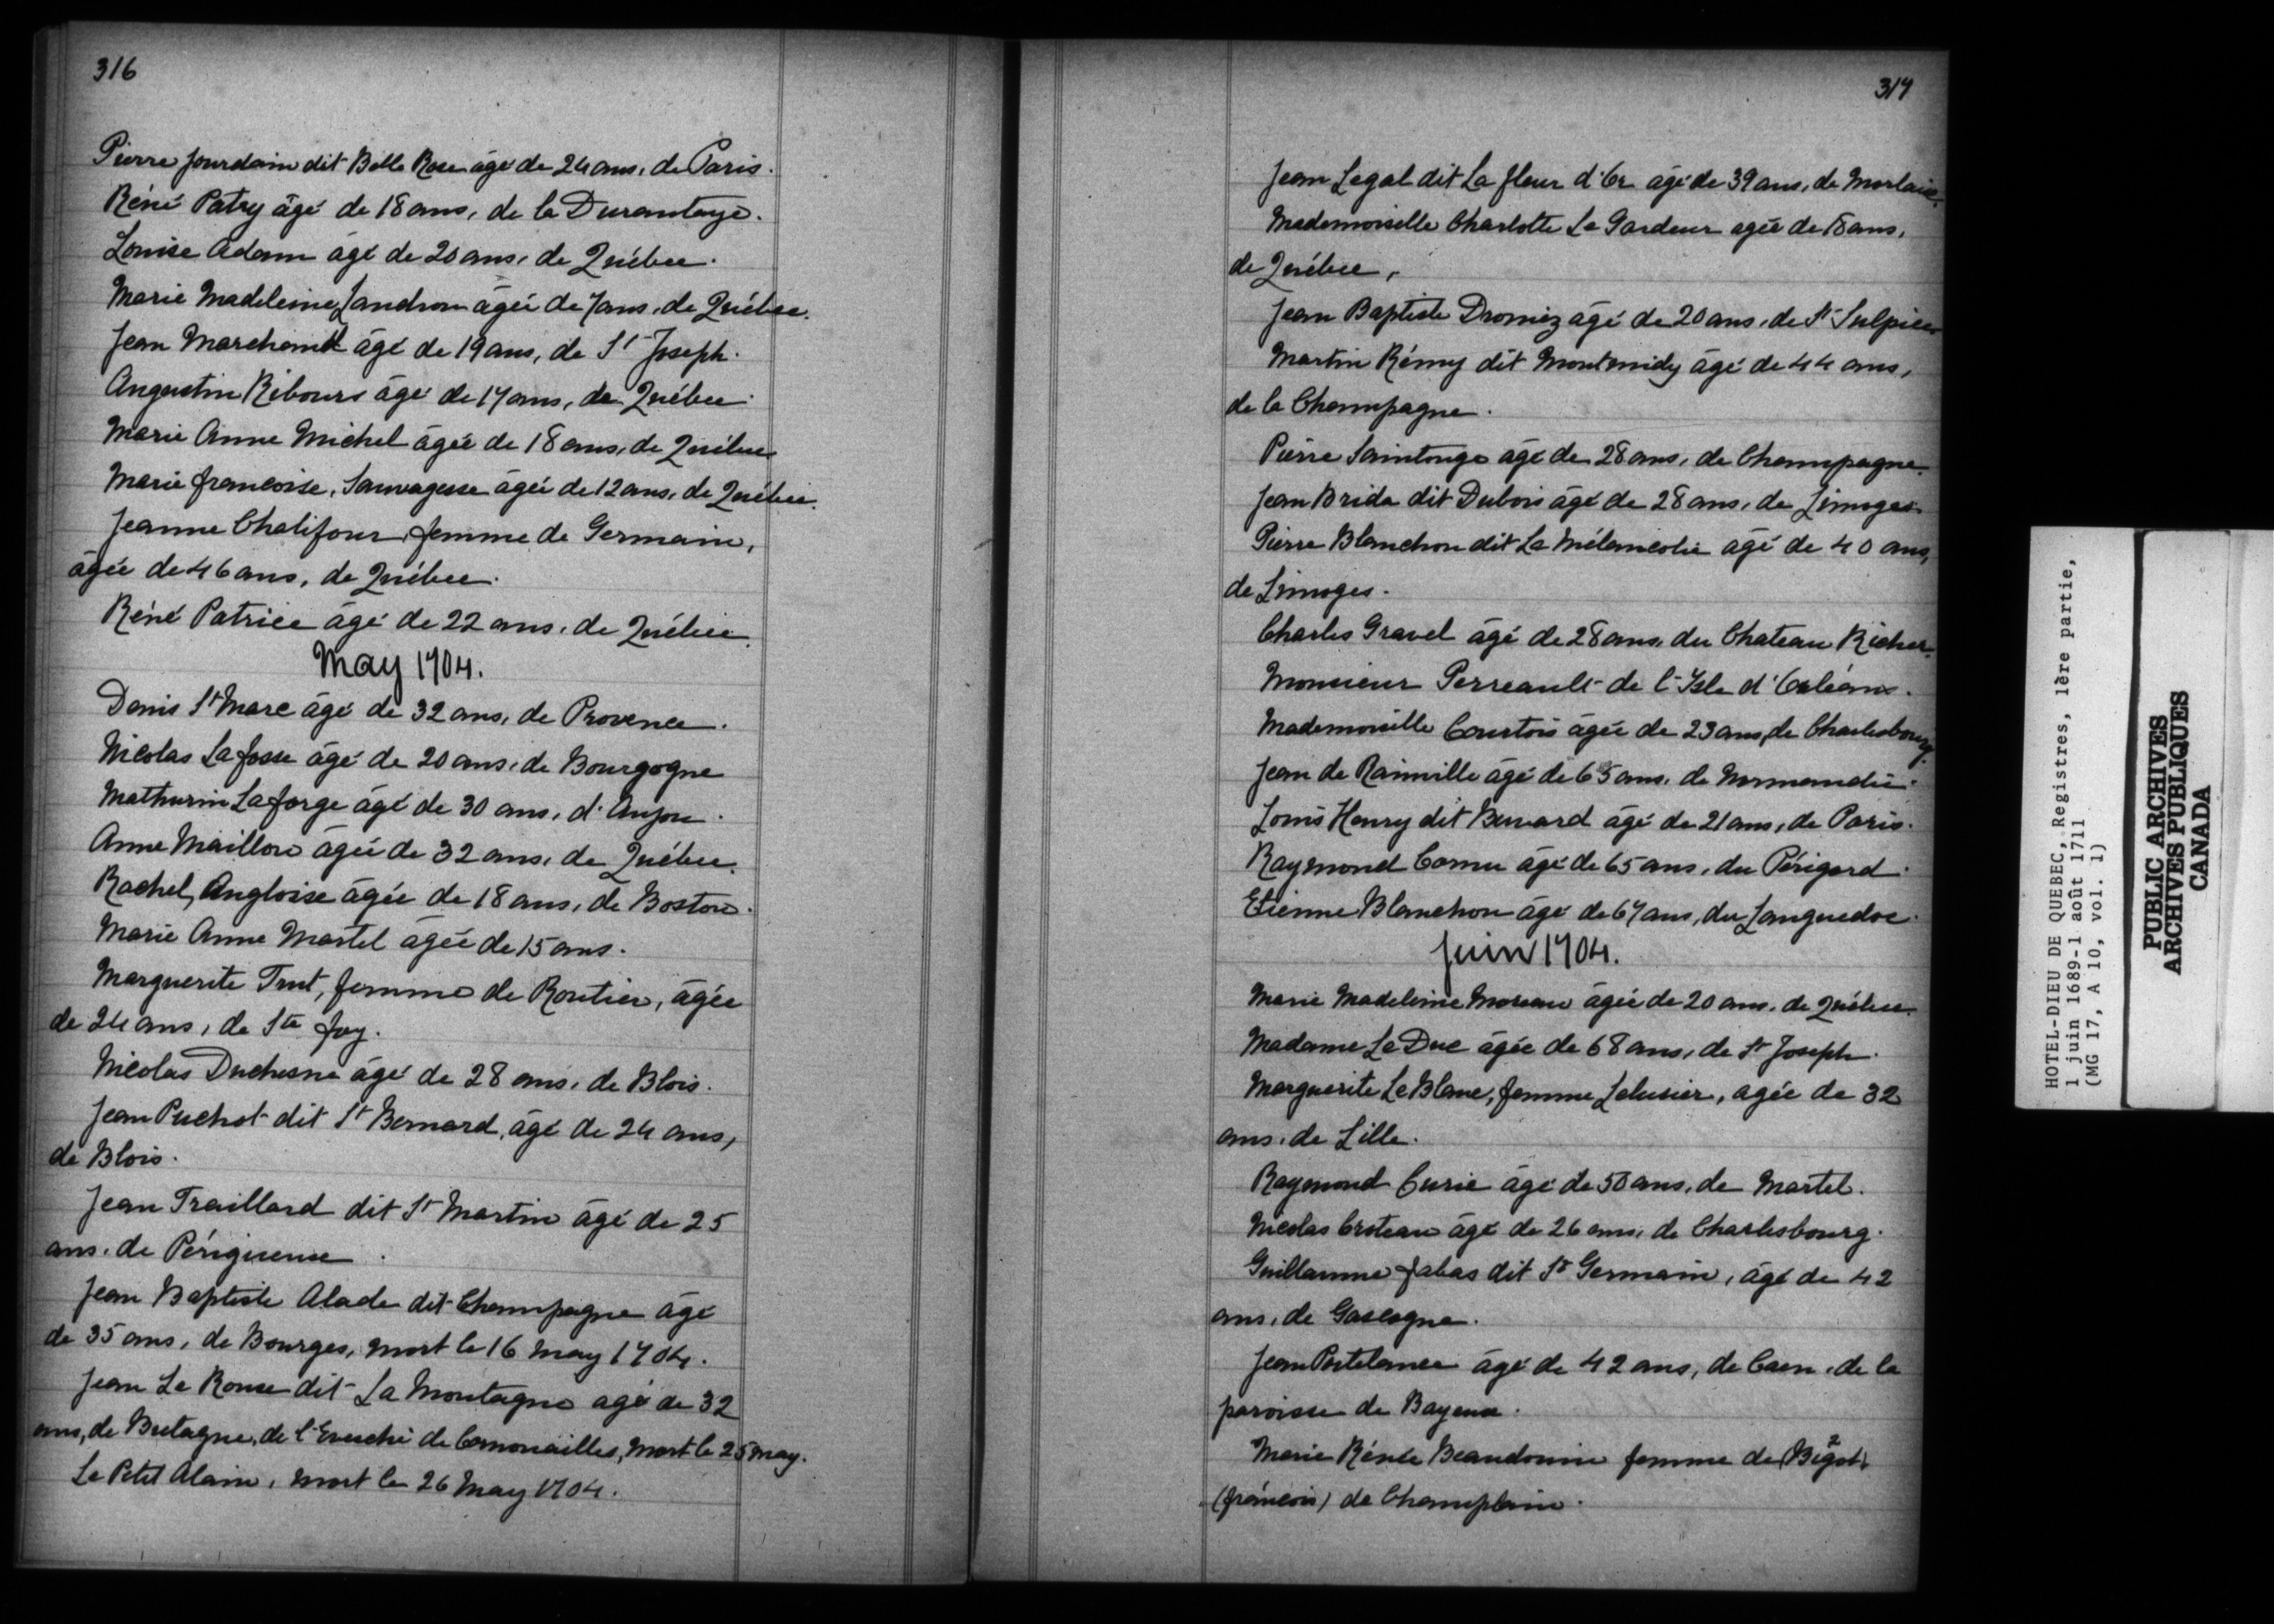 316
Pierre Jourdain dit Belle Rose âgé de 24 ans, de Paris.
Réné Patry âgé de 18 ans, de la Durantaye.
Louise Adam âgé de 20 ans, de Québec.
Marie Madeleine Landron âgée de 7 ans, de Québec.
Jean Marchand âgé de 19 ans, de St Joseph.
Augustin Ribours âgé de 17 ans, de Québec.
Marie Anne Michel âgée de 18 ans, de Québec
Marie francoise, Sauvagesse âgée de 12 ans, de Québec.
Jeanne Chalifour, femme de Germain,
âgée de 46 ans, de Québec.
Réné Patrice âgé de 22 ans, de Québec.
May 1704.
Denis St Marc âgé de 32 ans, de Provence.
Nicolas Lafosse âgé de 20 ans, de Bourgogne
Mathurin Laforge âgé de 30 ans, d'Anjou.
Anne Maillou âgée de 32 ans, de Québec.
Rachel, Angloise âgée de 18 ans, de Boston.
Marie Anne Martel âgée de 15 ans.
Marguerite Trut, femme de Routier, âgée
de 24 ans, de Ste foy.
Nicolas Duchesne âgé de 28 ans, de Blois.
Jean Puchot dit St Bernard, âgé de 24 ans,
de Blois.
Jean Traillard dit St Martin âgé de 25
ans, de Périgueux.
Jean Baptiste Alade dit Champagne âgé
de 35 ans, de Bourges, mort le 16 May 1704.
Jean Le Roux dit La Montagne agé de 32
ans, de Bretagne, de l'Evesché de Cornouailles, mort le 25 may.
Le Petit Alain, mort le 26 May 1704.
317
Jean Legal dit La fleur d'Or âgé de 39 ans, de Morlaix.
Mademoiselle Charlotte Le Gardeur agée de 18 ans,
de Québec,
Jean Baptiste Dromiz âgé de 20 ans, de St Sulpice
Martin Rémy dit Montmidy âgé de 44 ans,
de la Champagne.
Pierre Saintonge âgé de 28 ans, de Champagne.
Jean Brida dit Dubois âgé de 28 ans, de Limoges
Pierre Blanchon dit La Mélancolie âgé de 40 ans,
de Limoges.
Charles Gravel âgé de 28 ans, du Chateau Richer.
Monsieur Perreault de l'Isle d'Orléans.
Mademoiselle Courtois âgée de 23 ans, de Charlesbourg.
Jean de Rainville âgé de 65 ans, de Normandie.
Louis Henry dit Buvard âgé de 21 ans, de Paris.
Raymond Cornu âgé de 65 ans, du Périgord.
Etienne Blanchon âgé de 67 ans, du Languedoc.
Juin 1704.
Marie Madeleine Moreau âgée de 20 ans, de Québec.
Madame Le Duc âgée de 68 ans, de St Joseph.
Marguerite LeBlanc, femme Lelusier, agée de 32
ans, de Lille.
Raymond Curie âgé de 50 ans, de Martel.
Nicolas Croteau âgé de 26 ans, de Charlesbourg.
Guillaume fabas dit St Germain, âgé de 42
ans, de Gascogne.
Jean Portelance âgé de 42 ans, de Caen, de la
paroisse de Bayeux.
Marie Rénée Beaudouin femme de Bigot 2
(francois) de Champlain.
HOTEL-DIEU DE QUEBEC, Registres, 1ère partie,
1 juin 1689-1 août 1711
(MG 17, A 10, vol. 1)
PUBLIC ARCHIVES
ARCHIVES PUBLIQUES
CANADA